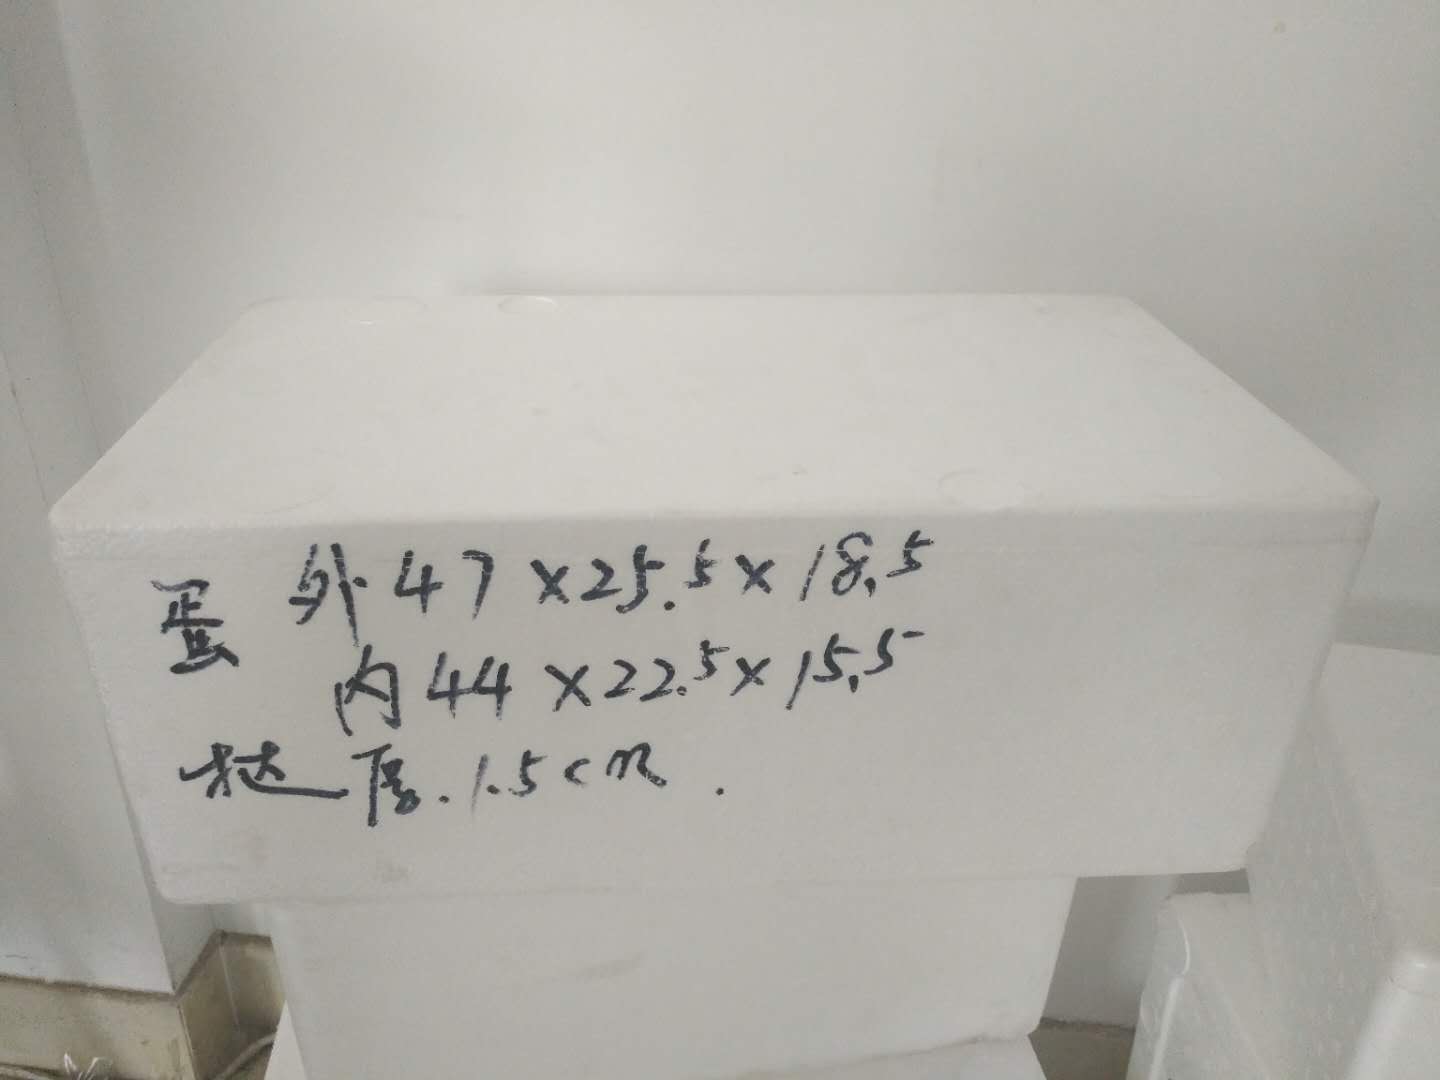 蛋 外47×25.5×18.5
内44×22.5×15.5
挞 厚.1.5cm.